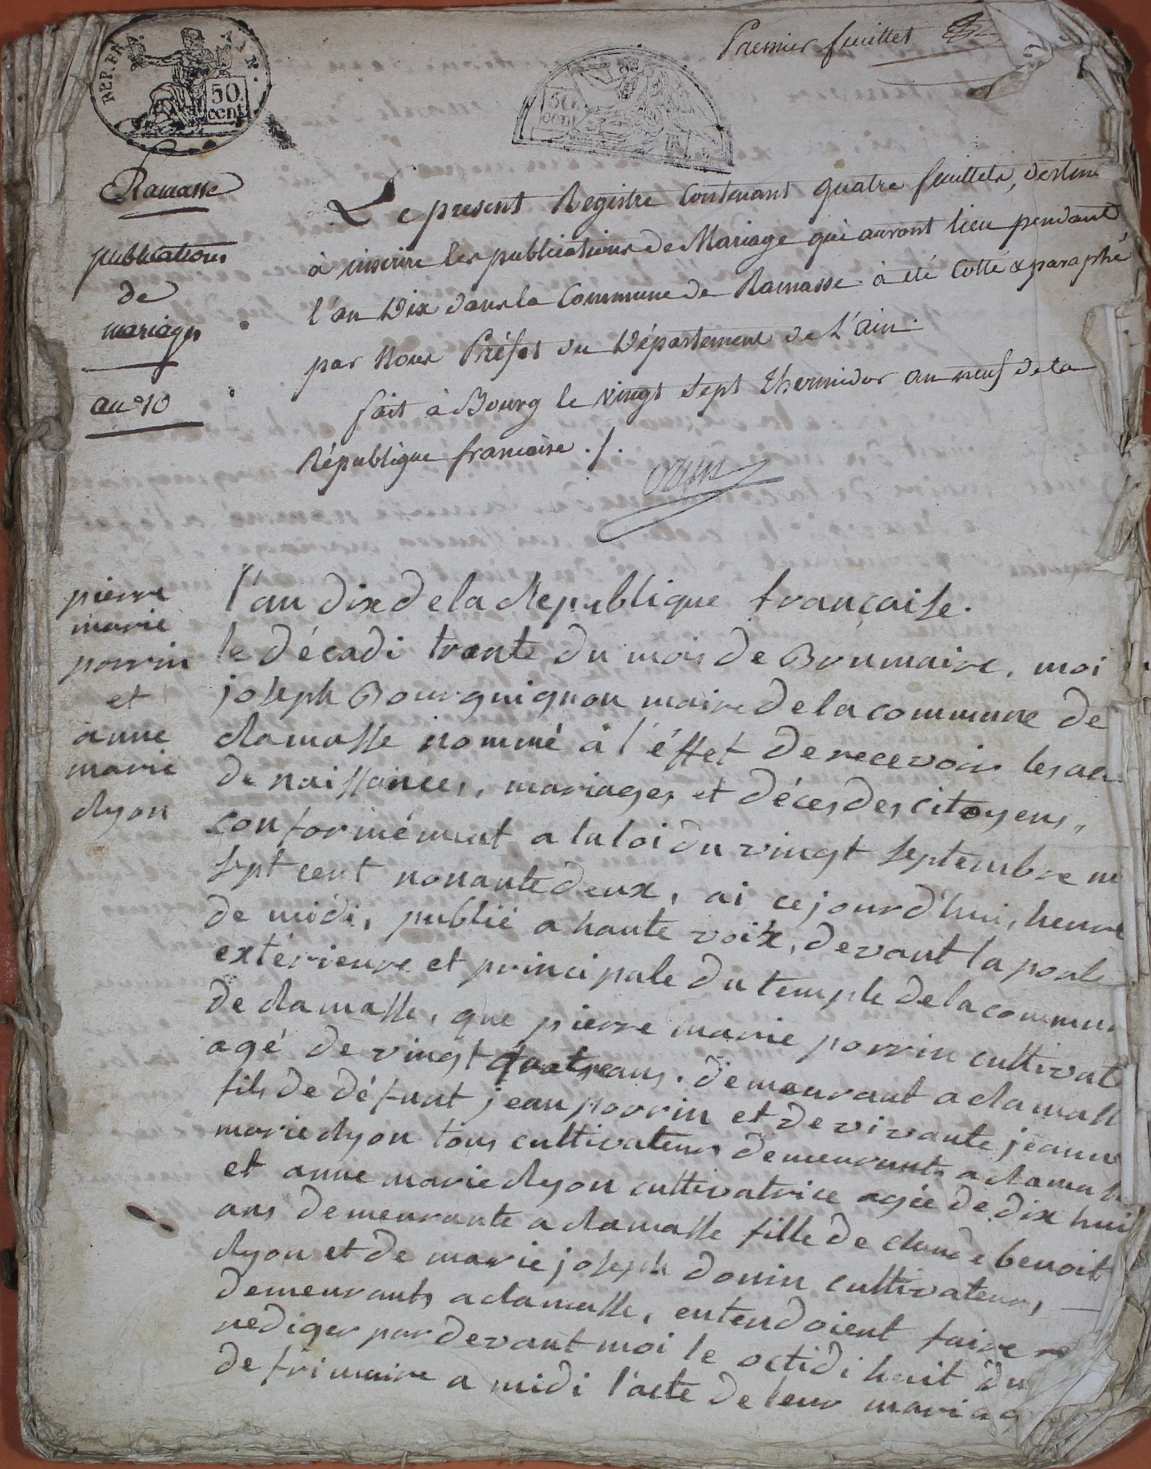 REP. FRA.
50
cent
50
cent
Premier feuillet
Ramasse
publications
de
mariages
an 10
Le present Registre Contenant quatre feuillets, destiné
à inscrire les publications de Mariage qui auront lieu pendant
l'an Dix dans la Commune de Ramasse à été Cotté & paraphé
par Nous Préfet du Département de L'ain.
fait à Bourg le vingt Sept Thermidor an neuf de la
République francaise ./.
pierre
marie
porrin
et
anne
marie
Ryon
l'an dix de la Republique française.
le décadi trente du mois de Brumaire, moi
joseph Bourguignon maire de la commune de
Ramasse nommé à l'éffet de recevoir les ac
de naissances, mariages et décès des citoyens,
conformément a la loi du vingt septembre m
sept cent nonante deux, ai cejourd'hui, heure
de midi, publié a haute voix, devant la porte
extérieure et principale du temple de la commun
de Ramasse, que pierre marie porrin cultivat
agé de vingt quatre ans. demeurant a Ramass
fils de défunt jean porrin et de vivante jeanne
marie Ryon tous cultivateurs demeurants a Ramass
et anne marie Ryon cultivatrice agée de dix huit
ans demeurante a Ramasse fille de claude benoit
Ryon et de marie joseph donin cultivateurs,
demeurants a Ramasse, entendoient faire
rediger par devant moi le octidi huit du
de frimaire a midi l'acte de leur mariag